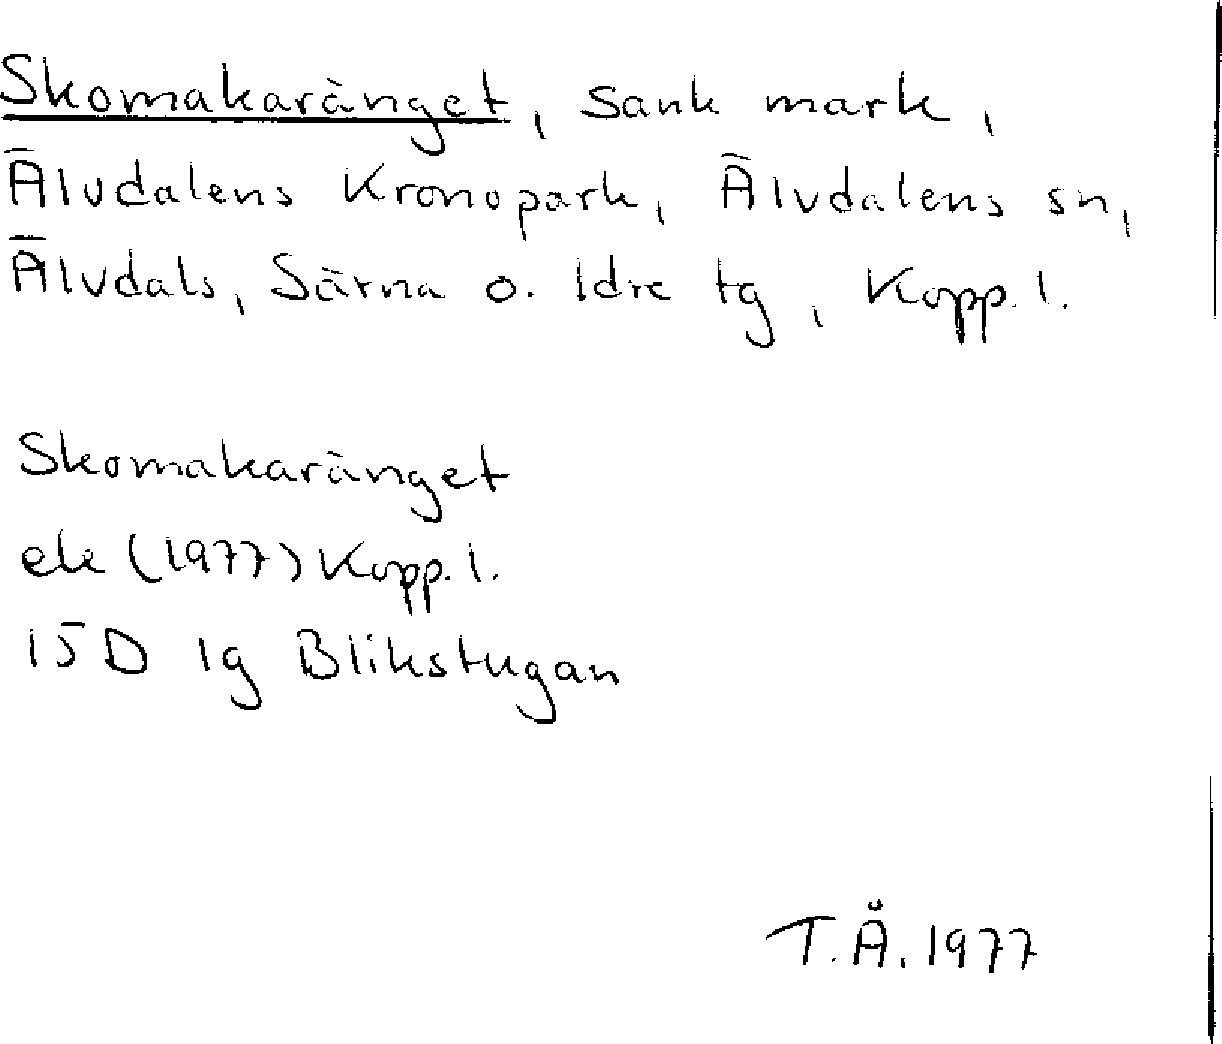 Skomakaränget, Sank mark,
Älvdalens Kronopark, Älvdalens sn,
Älvdals, Särna o. Idre tg, Kopp. l.
Skomakaränget
ek (1977) Kopp. l.
15D 1g Blikstugan
T.Å. 1977